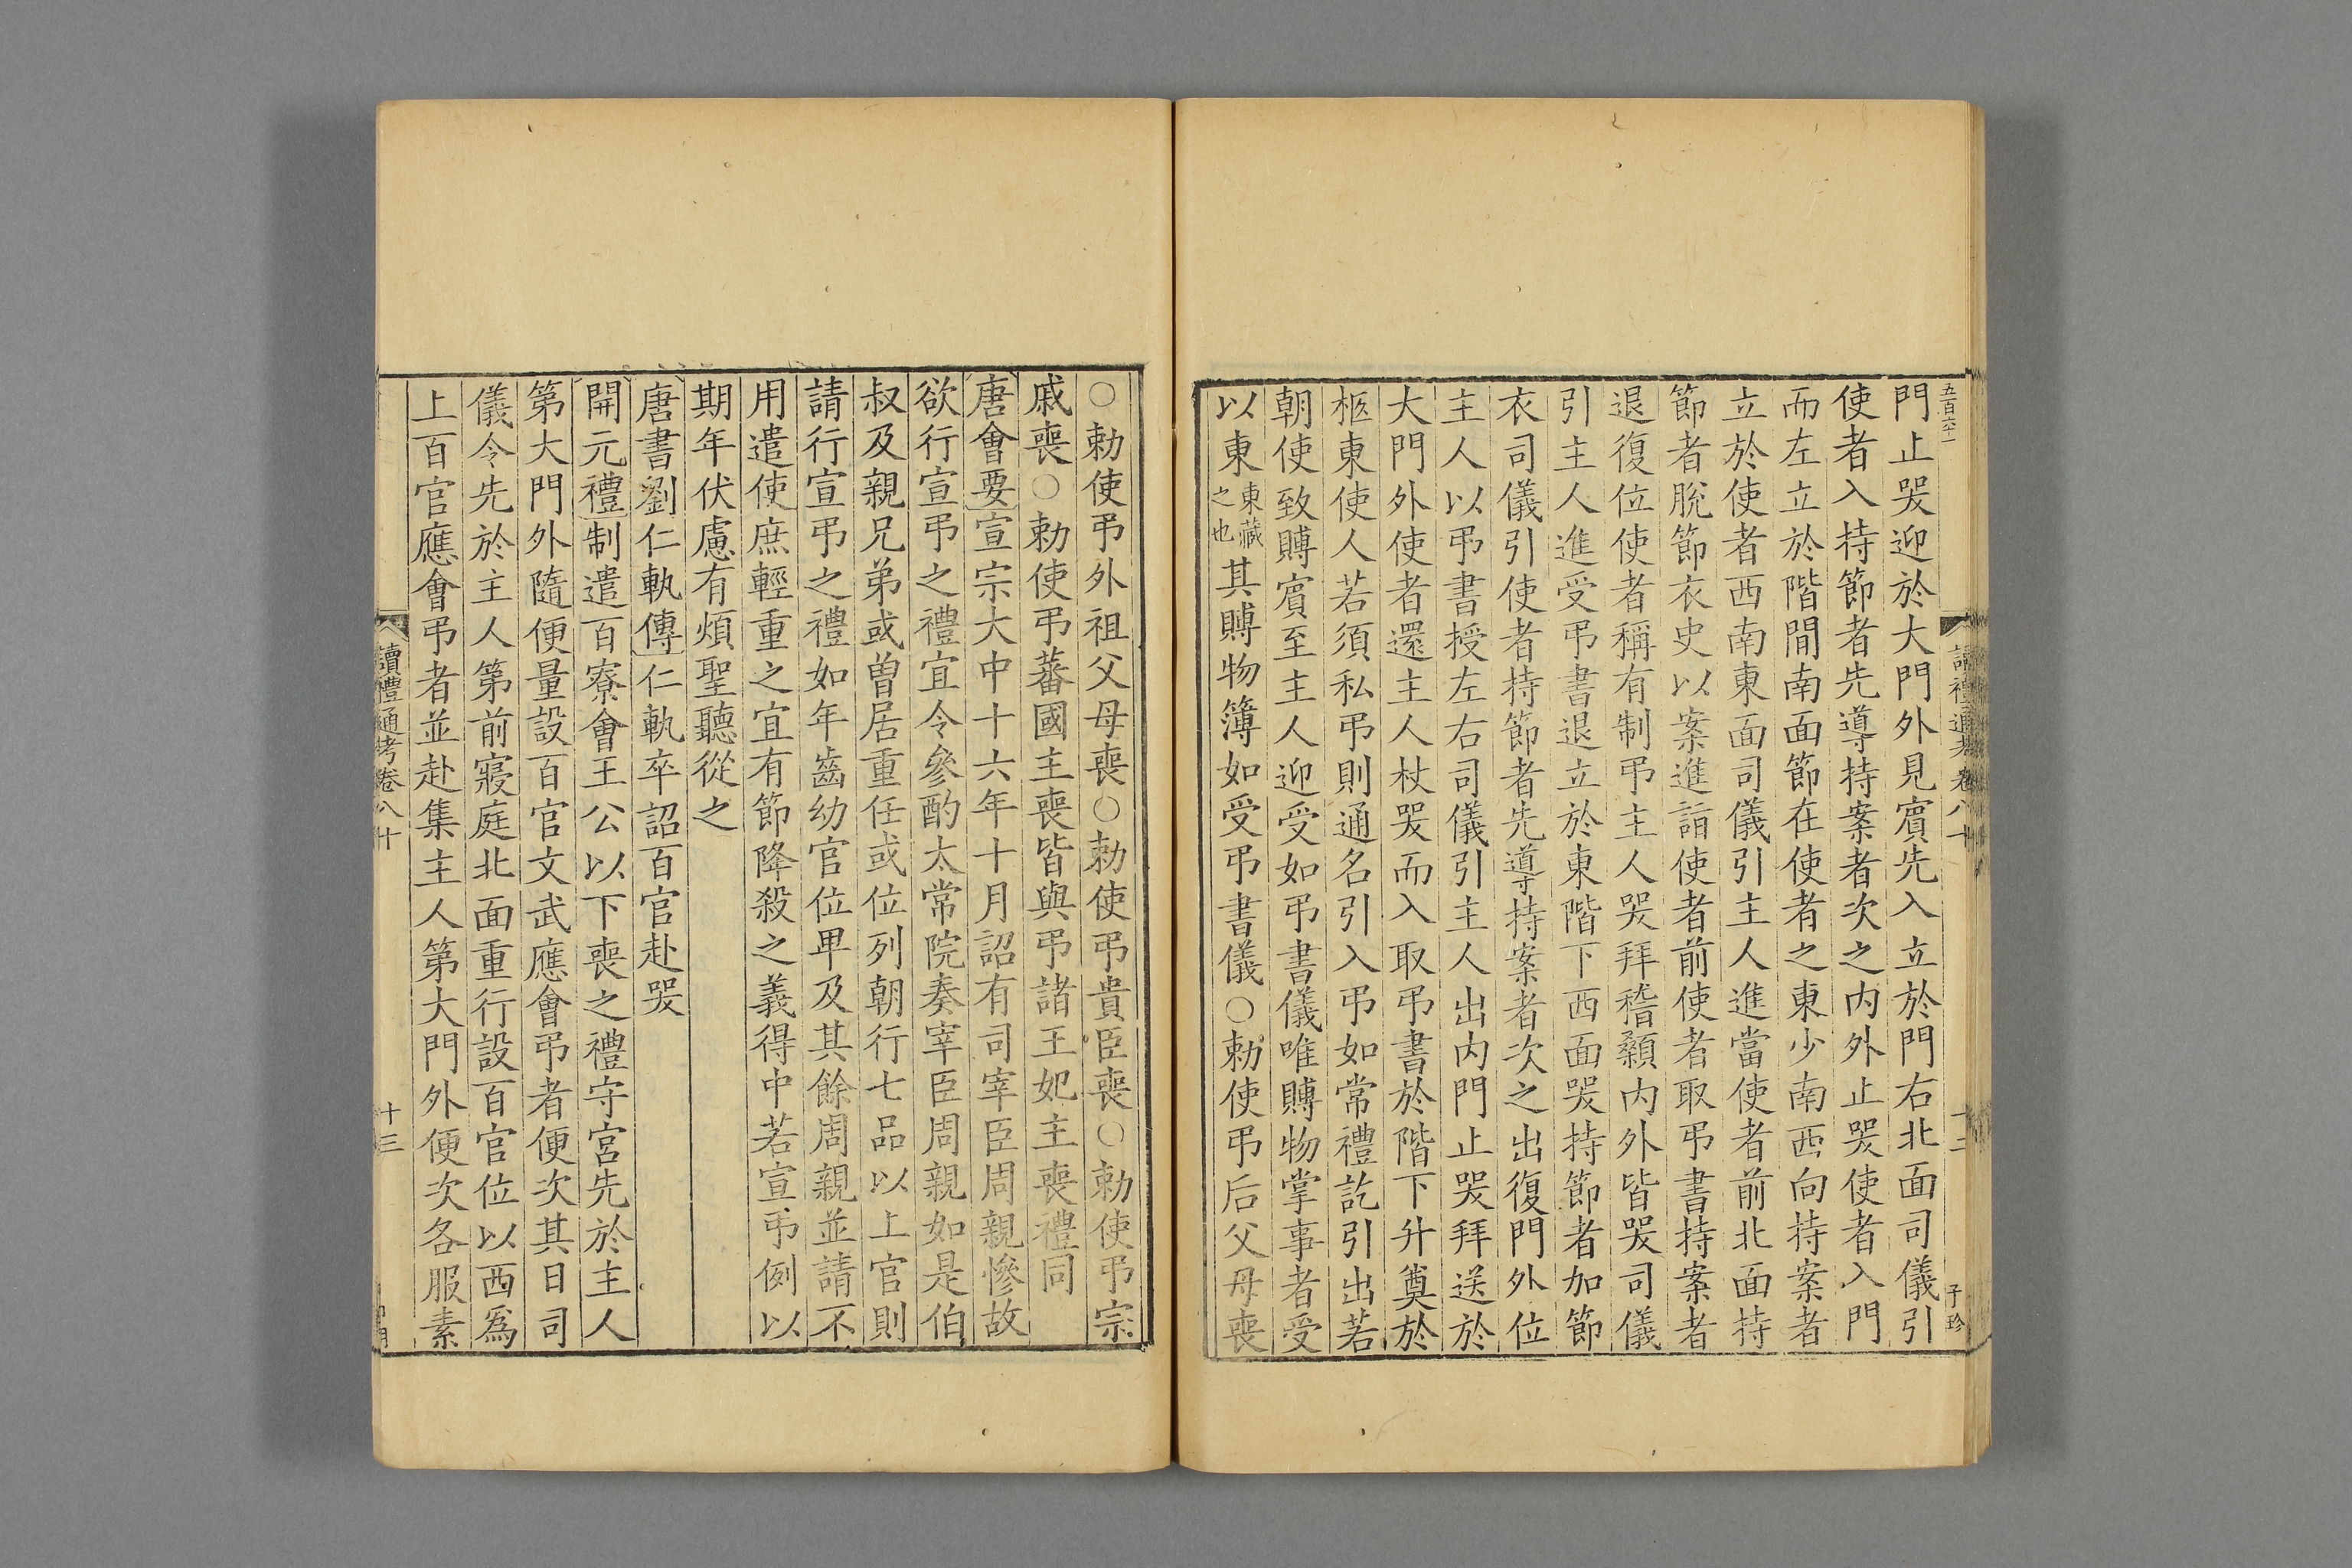 五百六十
讀禮通考卷八十
十三
子珍
門止哭迎於大門外見賔先入立於門右北面司儀引
使者入持節者先導持案者次之内外止哭使者入門
而左立於階間南面節在使者之東少南西向持案者
立於使者西南東面司儀引主人進當使者前北面持
節者脫節衣史以案進詣使者前使者取弔書持案者
退復位使者稱有制弔主人哭拜稽顙内外皆哭司儀
引主人進受弔書退立於東階下西面哭持節者加節
衣司儀引使者持節者先導持案者次之出復門外位
主人以弔書授左右司儀引主人出内門止哭拜送於
大門外使者還主人杖哭而入取弔書於階下升奠於
柩東使人若須私弔則通名引入弔如常禮訖引出若
朝使致賻賔至主人迎受如弔書儀唯賻物掌事者受
以東東藏之也其賻物簿如受弔書儀○勅使弔后父母喪
○勅使弔外祖父母喪○勅使弔貴臣喪○勅使弔宗
戚喪○勅使弔蕃國主喪皆與弔諸王妃主喪禮同
唐會要宣宗大中十六年十月詔有司宰臣周親慘故
欲行宣弔之禮宜令參酌太常院奏宰臣周親如是伯
叔及親兄弟或曽居重任或位列朝行七品以上官則
請行宣弔之禮如年齒幼官位卑及其餘周親並請不
用遣使庶輕重之宜有節降殺之義得中若宣弔例以
期年伏慮有煩聖聽從之
唐書劉仁軌傳仁軌卒詔百官赴哭
開元禮制遣百寮會王公以下喪之禮守宮先於主人
第大門外隨便量設百官文武應會弔者便次其日司
儀令先於主人第前寢庭北面重行設百官位以西爲
上百官應會弔者並赴集主人第大門外便次各服素
讀禮通考卷八十
十三